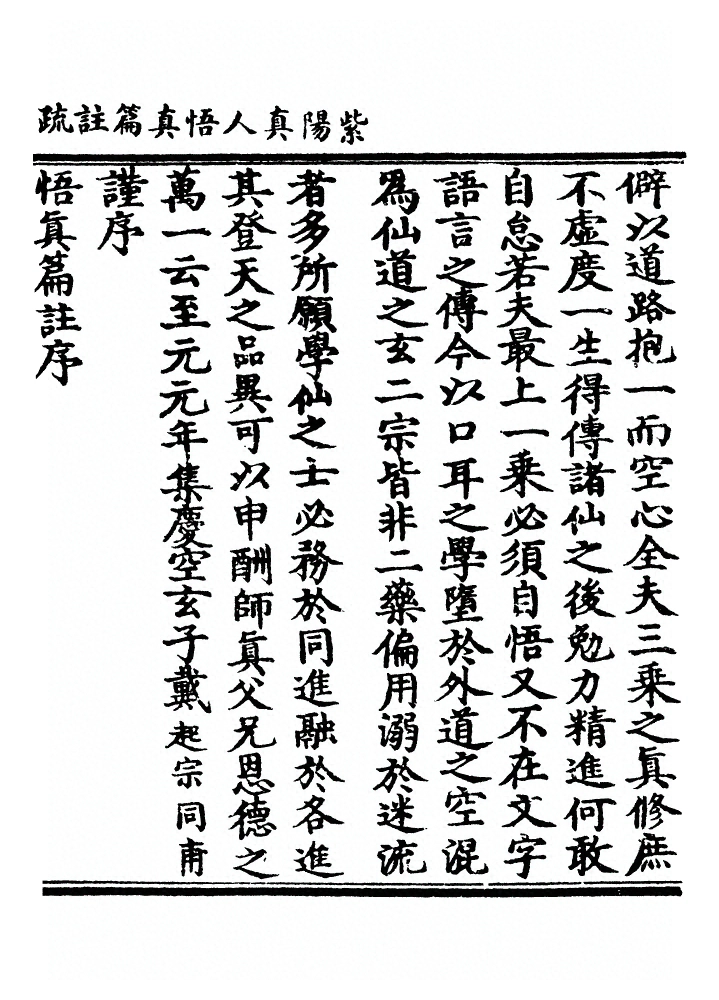 紫陽真人悟真篇註疏
僻以道路抱一而空心全夫三乘之眞修庶
不虛度一生得傳諸仙之後勉力精進何敢
自怠若夫最上一乘必須自悟又不在文字
語言之傳今以口耳之學墮於外道之空混
爲仙道之玄二宗皆非二藥偏用溺於迷流
者多所願學仙之士必務於同進融於各進
其登天之品異可以申酬師眞父兄恩德之
萬一云至元元年集慶空玄子戴起宗同甫
謹序
悟眞篇註序